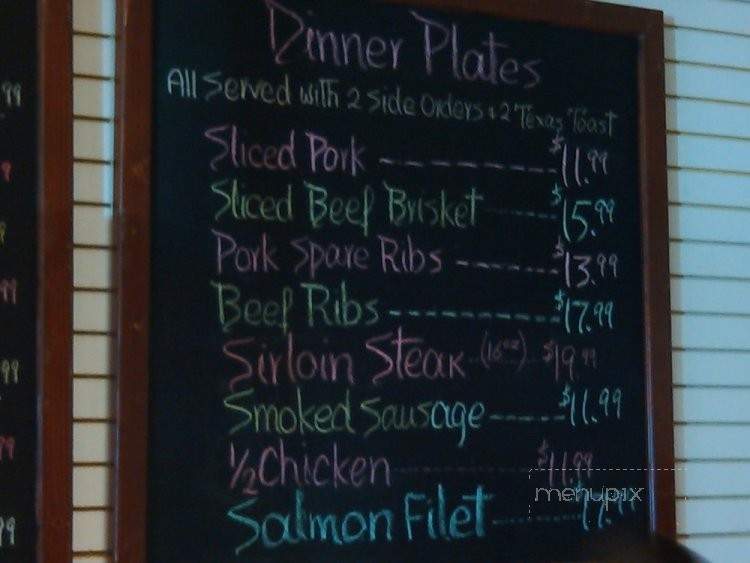 Dinner Plates
All Served with 2 Side Orders + 2 Texas Toast
Sliced Pork $11.99
Sliced Beef Brisket $15.99
Pork Spare Ribs $13.99
Beef Ribs $17.99
Sirloin Steak (16oz) $19.99
Smoked Sausage $11.99
1/2 Chicken $11.99
menupix
Salmon Filet